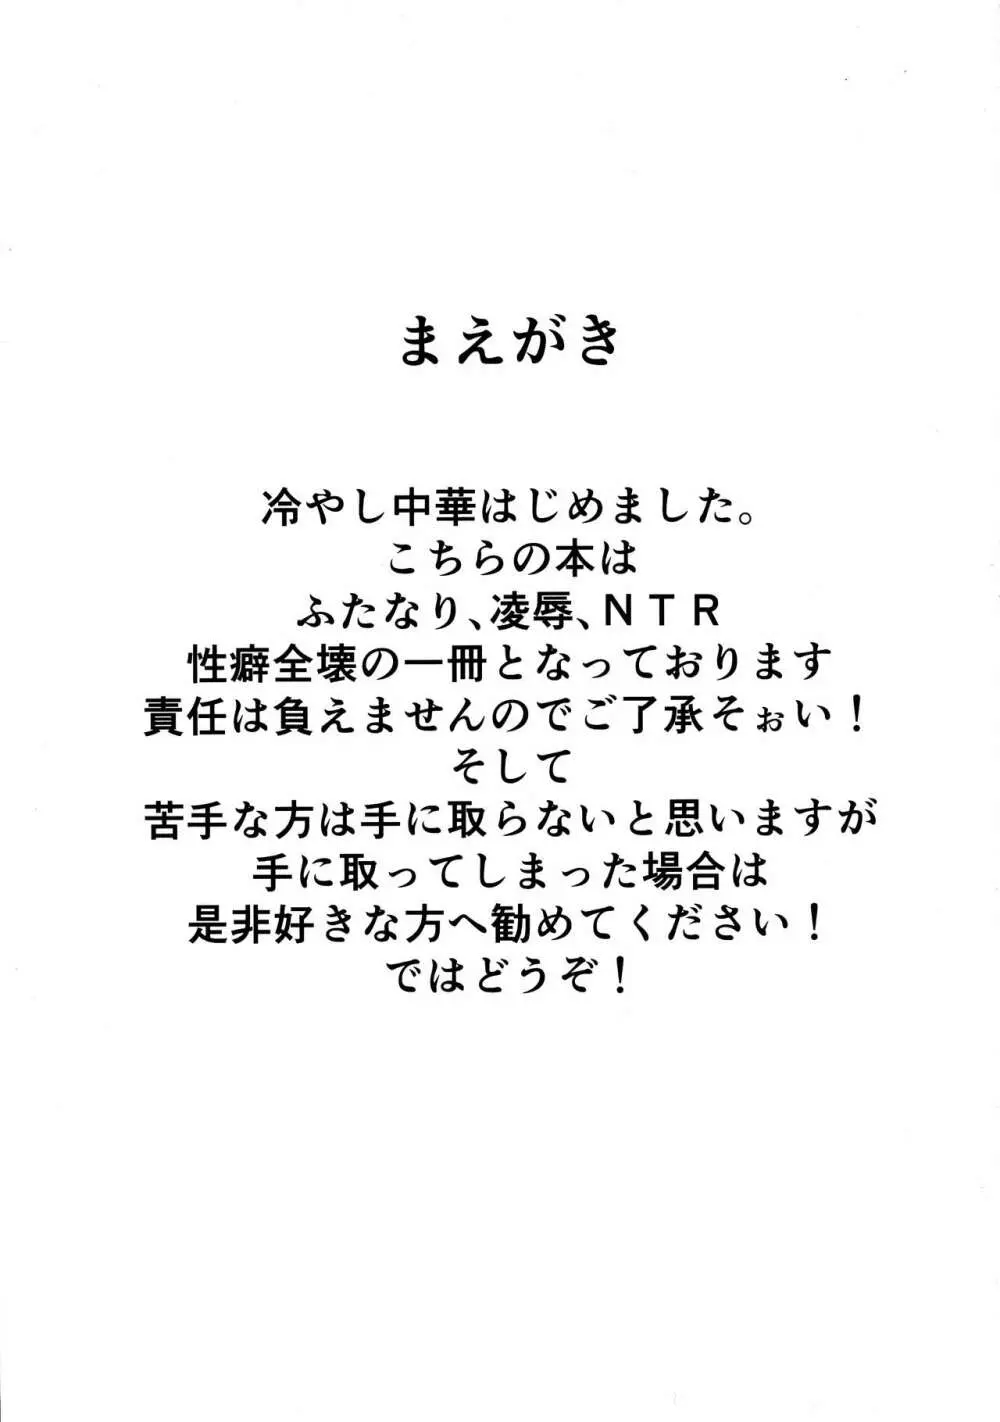 まえがき
冷やし中華はじめました。
こちらの本は
ふたなり、凌辱、ＮＴＲ
性癖全壊の一冊となっております
責任は負えませんのでご了承そぉい！
そして
苦手な方は手に取らないと思いますが
手に取ってしまった場合は
是非好きな方へ勧めてください！
ではどうぞ！